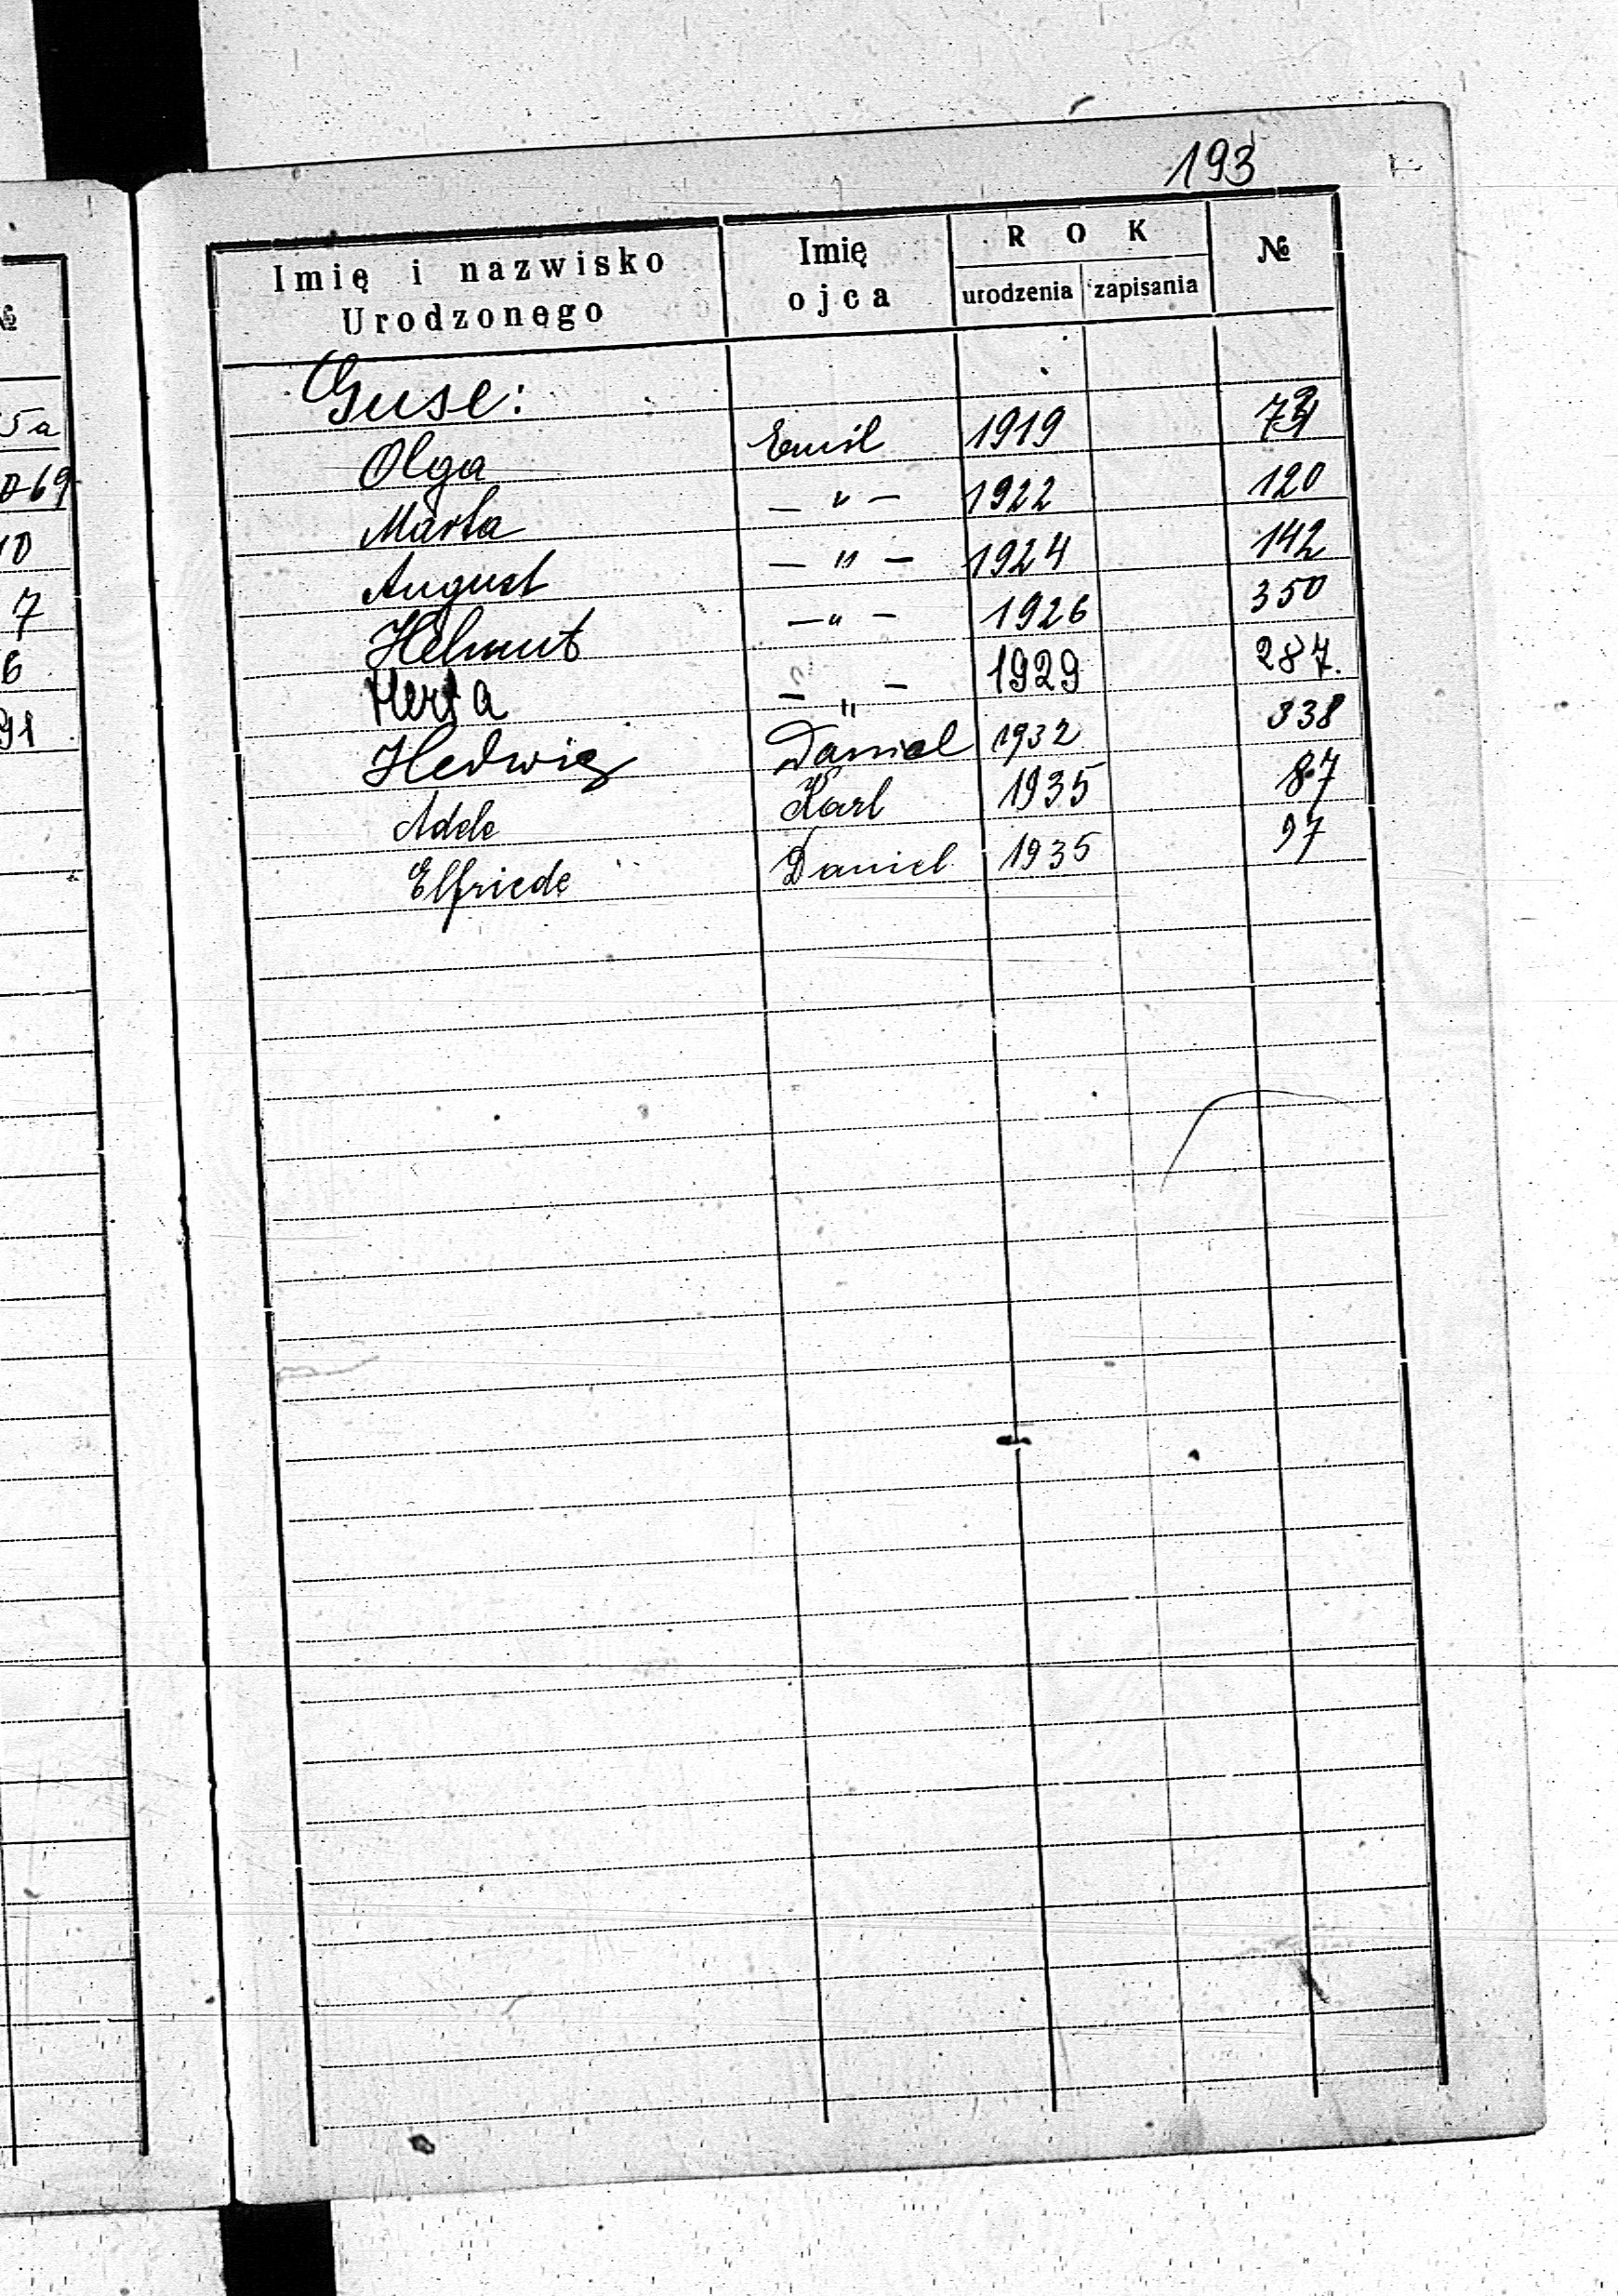 №
5a
069
10
7
6
91
193
Imię i nazwisko Urodzonego Imię ojca ROK urodzenia zapisania №
Guse:
Olga Emil 1919
Marta — " — 1922 120
August — " — 1924 142
Helmut — " — 1926 350
Herta — " — 1929 287.
Hedwig Daniel 1932 338
Adele Karl 1935 87
Elfriede Daniel 1935 97